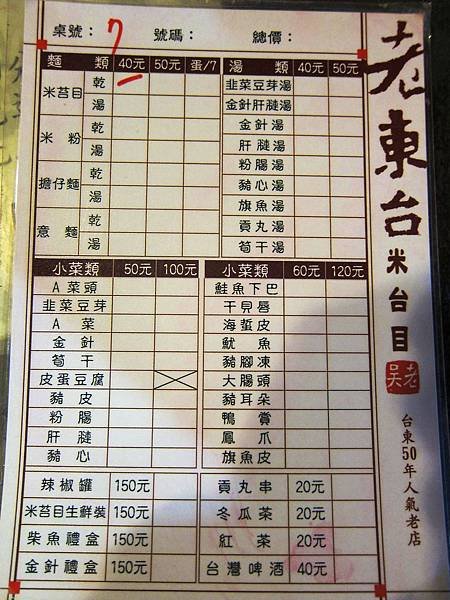 桌號：7 號碼： 總價：
麵 類 40元 50元 蛋/7
米苔目 乾
湯
米 粉 乾
湯
擔仔麵 乾
湯
意 麵 乾
湯
湯 類 40元 50元
韭菜豆芽湯
金針肝膶湯
金針湯
肝膶湯
粉腸湯
豬心湯
旗魚湯
貢丸湯
筍干湯
小菜類 50元 100元
A菜頭
韭菜豆芽
A 菜
金 針
筍 干
皮蛋豆腐
豬 皮
粉 腸
肝 膶
豬 心
小菜類 60元 120元
鮭魚下巴
干貝唇
海蜇皮
魷 魚
豬腳凍
大腸頭
豬耳朵
鴨 賞
鳳 爪
旗魚皮
辣椒罐 150元
米苔目生鮮裝 150元
柴魚禮盒 150元
金針禮盒 150元
貢丸串 20元
冬瓜茶 20元
紅 茶 20元
台灣啤酒 40元
老東台米台目
老吳
台東50年人氣老店